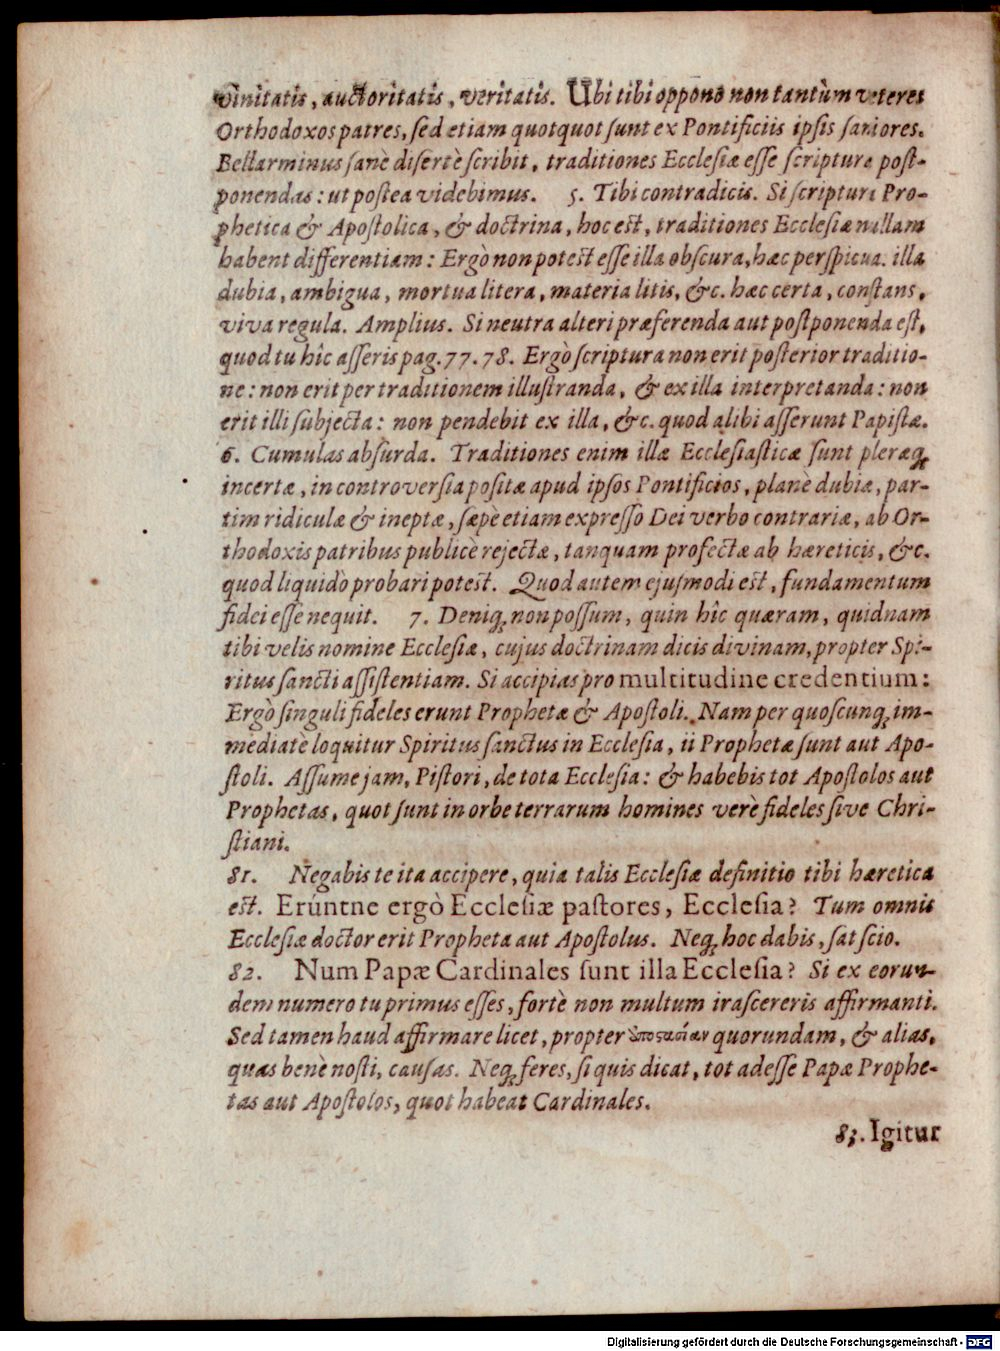 vinitatis, auctoritatis, veritatis. Ubi tibi oppono non tantùm veteres
Orthodoxos patres, sed etiam quotquot sunt ex Pontificiis ipsis saniores.
Bellarminus sanè disertè scribit, traditiones Ecclesiæ esse scripturæ post-
ponendas: ut postea videbimus. 5. Tibi contradicis. Si scriptura Pro-
phetica & Apostolica, & doctrina, hoc est, traditiones Ecclesiæ nullam
habent differentiam: Ergò non potest esse illa obscura, hæc perspicua. illa
dubia, ambigua, mortua litera, materia litis, &c. hæc certa, constans,
viva regula. Amplius. Si neutra alteri præferenda aut postponenda est,
quod tu hîc asseris pag. 77. 78. Ergò scriptura non erit posterior traditio-
ne: non erit per traditionem illustranda, & ex illa interpretanda: non
erit illi subjecta: non pendebit ex illa, &c. quod alibi asserunt Papistæ.
6. Cumulas absurda. Traditiones enim illæ Ecclesiasticæ sunt pleræq;
incertæ, in controversia positæ apud ipsos Pontificios, planè dubiæ, par-
tim ridiculæ & ineptæ, sæpè etiam expresso Dei verbo contrariæ, ab Or-
thodoxis patribus publicè rejectæ, tanquam profectæ ab hæreticis, &c.
quod liquidò probari potest. Quod autem ejusmodi est, fundamentum
fidei esse nequit. 7. Deniq; non possum, quin hîc quæram, quidnam
tibi velis nomine Ecclesiæ, cujus doctrinam dicis divinam, propter Spi-
ritus sancti assistentiam. Si accipias pro multitudine credentium:
Ergò singuli fideles erunt Prophetæ & Apostoli. Nam per quoscunq; im-
mediatè loquitur Spiritus sanctus in Ecclesia, ii Prophetæ sunt aut Apo-
stoli. Assume jam, Pistori, de tota Ecclesia: & habebis tot Apostolos aut
Prophetas, quot sunt in orbe terrarum homines verè fideles sive Chri-
stiani.
81. Negabis te ita accipere, quia talis Ecclesiæ definitio tibi hæretica
est. Erúntne ergò Ecclesiæ pastores, Ecclesia? Tum omnis
Ecclesiæ doctor erit Propheta aut Apostolus. Neq; hoc dabis, sat scio.
82. Num Papæ Cardinales sunt illa Ecclesia? Si ex eorun-
dem numero tu primus esses, fortè non multum irascereris affirmanti.
Sed tamen haud affirmare licet, propter quorundam, & alias,
quas benè nosti, causas. Neq; feres, si quis dicat, tot adesse Papæ Prophe-
tas aut Apostolos, quot habeat Cardinales.
83. Igitur
Digitalisierung gefördert durch die Deutsche Forschungsgemeinschaft - DFG